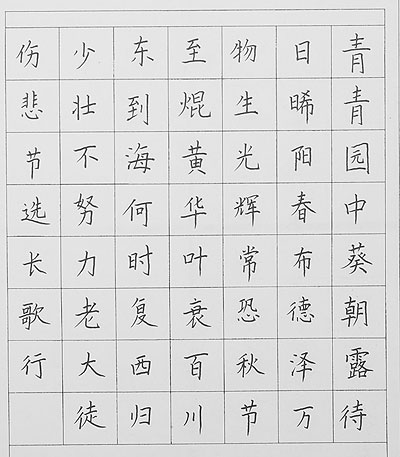 青青园中葵朝露待
日晞阳春布德泽万
物生光辉常恐秋节
至焜黄华叶衰百川
东到海何时复西归
少壮不努力老大徒
伤悲节选长歌行